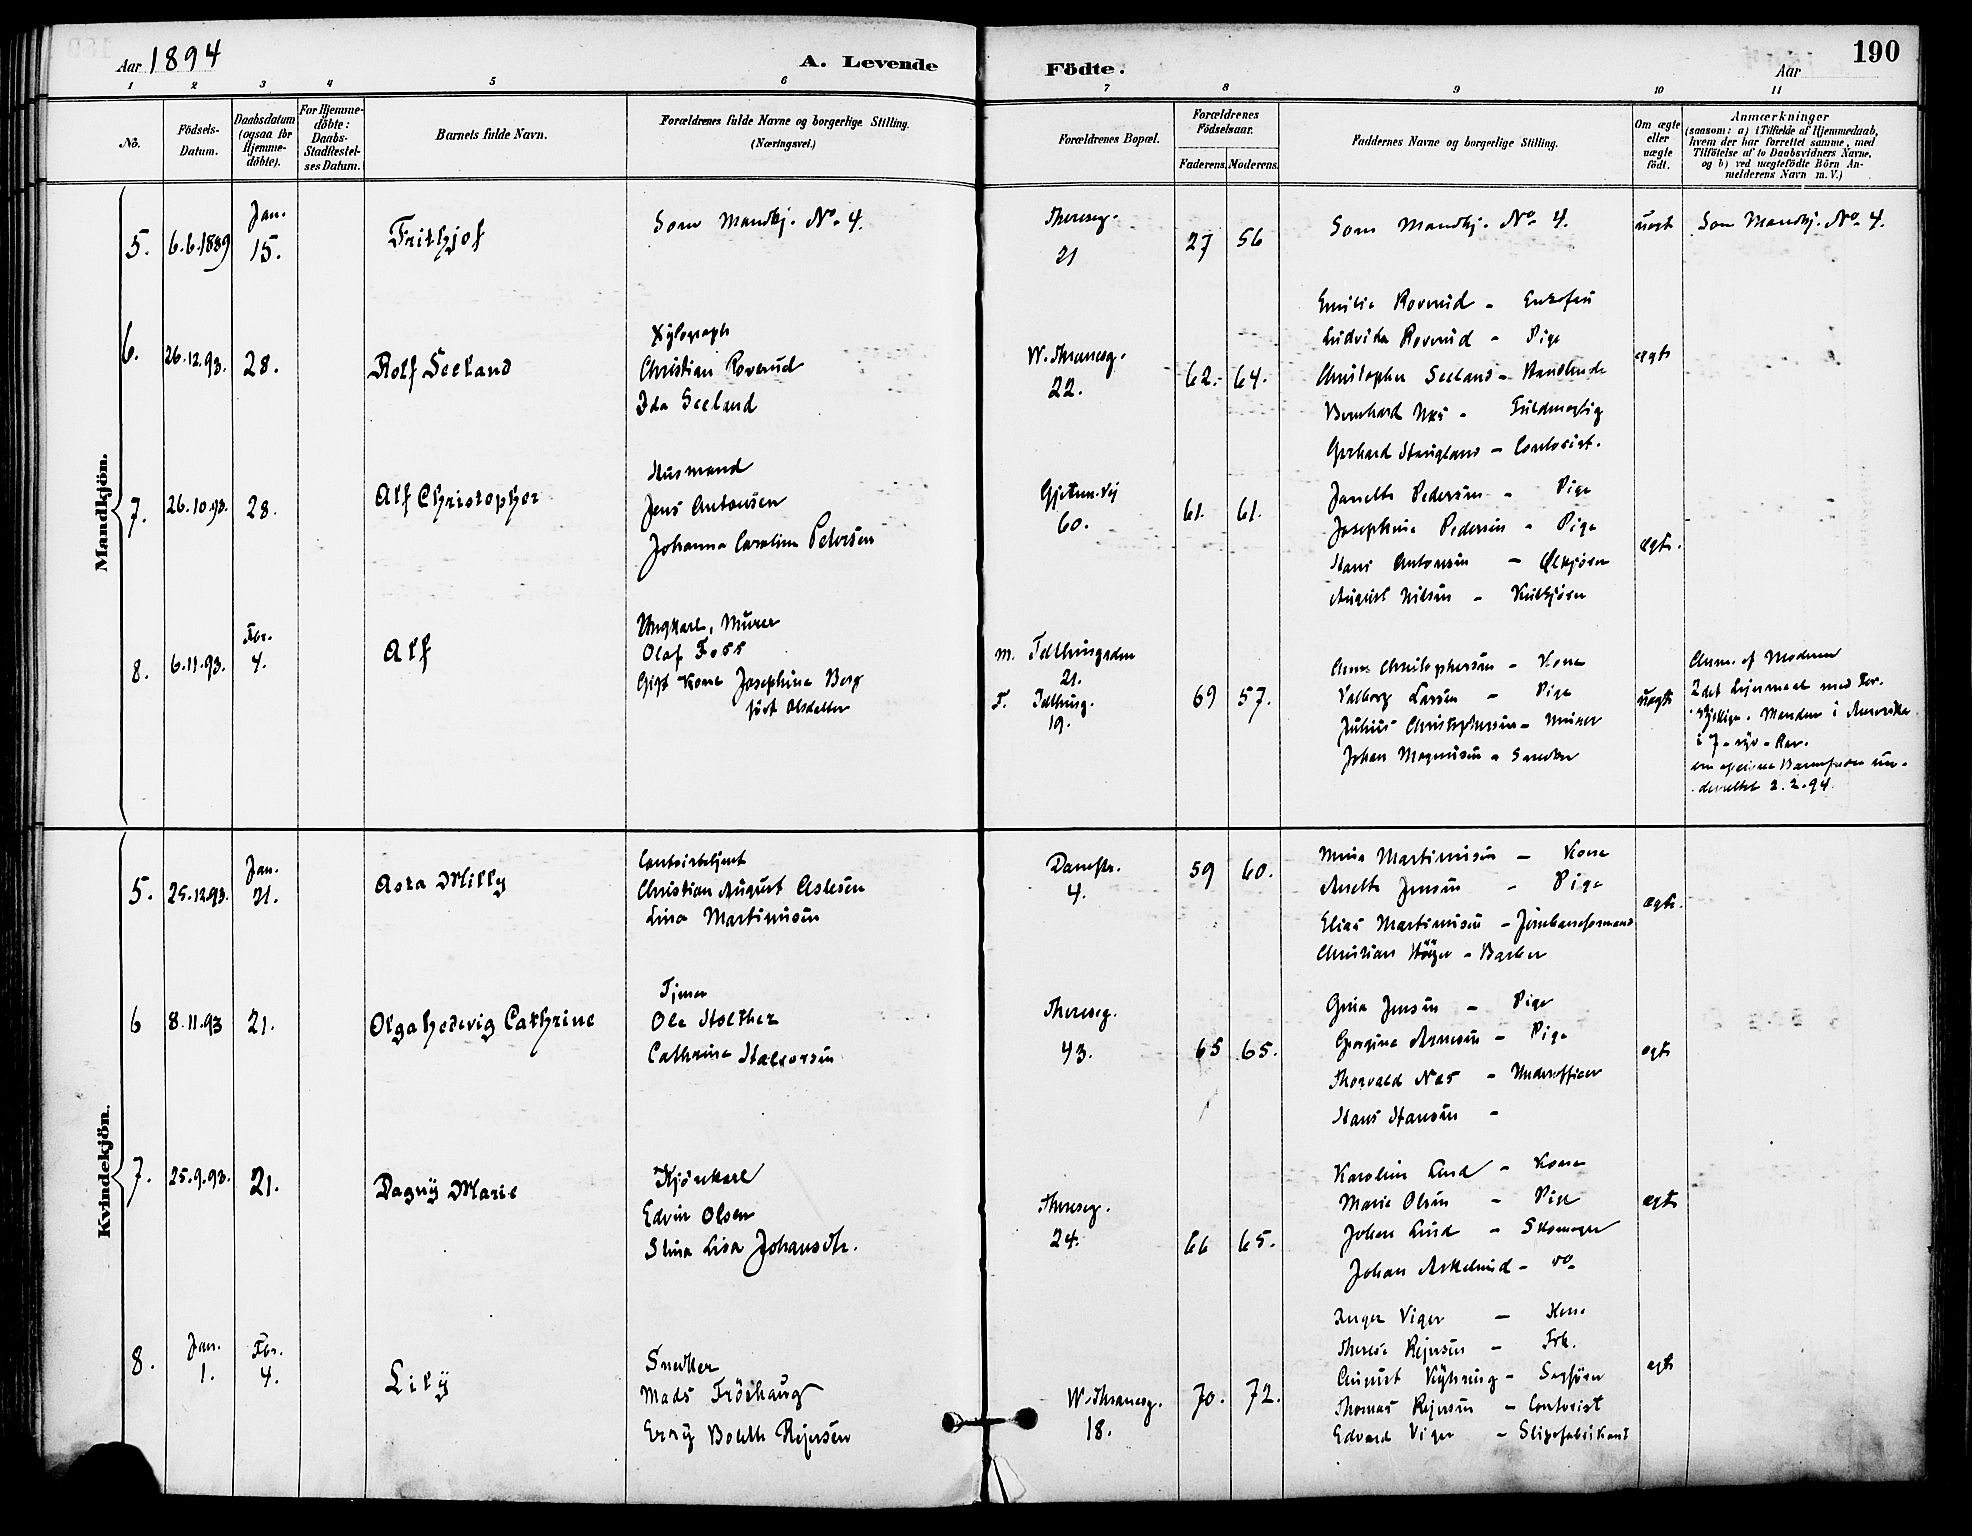 Aar 1894
A. Levende Födte.
Aar
190
1 2 3 4 5 6 7 8 9 10 11
No.
Födsels-Datum.
Daabsdatum (ogsaa för Hjemme-döbte).
For Hjemme-döbte: Daabs-Stadfestel-ses Datum.
Barnets fulde Navn.
Forældrenes fulde Navne og borgerlige Stilling. (Næringsvei.)
Forældrenes Bopæl.
Forældrenes Födselsaar.
Faderens. Moderens.
Faddernes Navne og borgerlige Stilling.
Om ægte eller uægte födt.
Anmærkninger
(saasom: a) i Tilfælde af Hjemmedaab,
hvem der har forrettet samme, med
Tilföielse af to Daabsvidners Navne,
og b) ved uægtefödte Börn An-
melderens Navn m. V.)
Mandkjön.
5. 6.6.1889 Jan. 15.
Frithjof
Som Mandkj. No. 4.
Thereseg.
21
27 56
Som Mandkj. No. 4.
uegt
Som Mandkj. No. 4.
6. 26.12.93. 28.
Rolf Seeland
Xylograph
Christian Roverud
Ida Seeland
W. Thranesg.
22.
62. 64.
Emilie Roverud - Enkefru
Ludvika Roverud - Pige
Christopher Seeland - Handlende
Bernhard Næs - Fuldmægtig
Gerhard Haugland - Contorist.
egte
7. 26.10.93. 28.
Alf Christopher
Husmand
Jens Antonsen
Johanna Caroline Petersen
Gjetem.vej
60.
61. 61.
Janette Pedersen - Pige
Josephine Pedersen - Pige
Hans Antonsen - Ølkjører
August Nilsen - Kulkjører
egte.
8. 6.11.93. Febr. 4.
Alf
Ungkarl, Murer
Olaf Foss
Gift Kone Josephine Berg
født Olsdatter
M. Telthusgaden
21.
F. Telthusg.
19.
69 57.
Anne Christophersen - Kone
Valborg Larsen - Pige
Julius Christophersen - Murer
Johan Magnusen - Snedker
uegte
Anm. af Moderen
2det Leiermaal med For-
skjellige. Manden i Amerika
i 7 - syv - Aar.
2.2.94.
Kvindekjön.
5. 25.12.93. Jan. 21.
Asta Milly
Contoirbetjent
Christian August Aslesen
Lina Martinusen
Danestr.
4.
59 60.
Mina Martinusen - Kone
Anette Jensen - Pige
Elias Martinusen - Jernbaneformand
Christian Höyer - Barber
egte.
6 8.11.93 21.
Olga Hedevig Cathrine
Tjener
Ole Holther
Cathrine Halvorsen
Thereseg.
43.
65 65.
Gina Jensen - Pige
Georgine Arnesen - Pige
Thorvald Næs - Underofficer
Hans Hansen -
egte
7. 25.9.93. 21.
Dagny Marie
Kjörekarl
Edvin Olsen
Stina Lisa Johansdtr.
Thereseg.
24.
66 65.
Karoline Lund - Kone
Marie Olsen - Pige
Johan Lund - Skomager
Johan Askelund - do
egte
8. Jan. 1. Febr. 4.
Lily
Snedker
Mads Fröshaug
Enny Bolette Rejersen
W. Thranesg.
18.
70. 72.
Inger Viger - Kone
Therese Rejersen - Frk.
August Kyhring - Sagfører
Thomas Rejersen - Contorist
Edvard Viger - Slipsfabrikant
egte